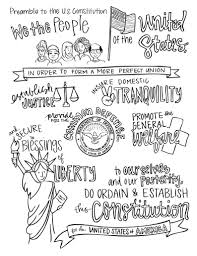 Preamble to the U.S. Constitution
We the People
of the United States,
IN ORDER TO FORM A MORE PERFECT UNION
establish JUSTICE
INSURE DOMESTIC TRANQUILITY
provide FOR THE COMMON DEFENSE
PROMOTE THE GENERAL Welfare
and SECURE the Blessings of LIBERTY
to ourselves, and our Posterity,
DO ORDAIN & ESTABLISH
this Constitution
for the UNITED STATES of AMERICA